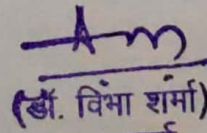 (डॉ. विभा शर्मा)